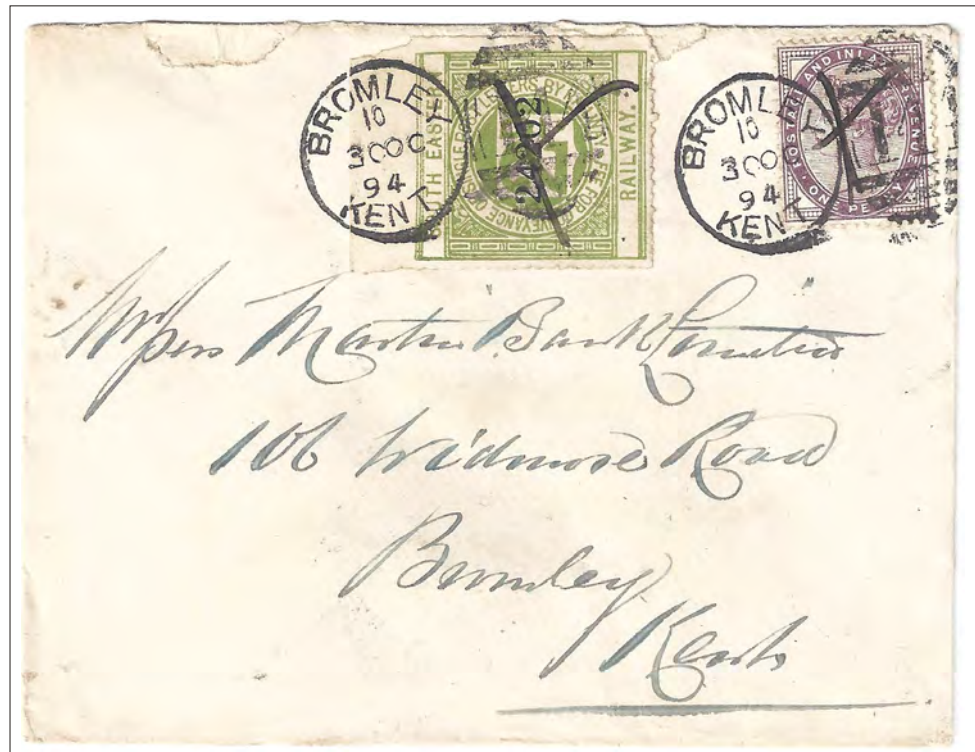 BROMLEY
10
30 OC
94
KENT
SOUTH EASTERN
RAILWAY.
24202
BROMLEY
10
30 OC
94
KENT
POSTAGE AND INLAND REVENUE
ONE PENNY
Messrs Martins Bank Limited
106 Widmore Road
Bromley
Kent